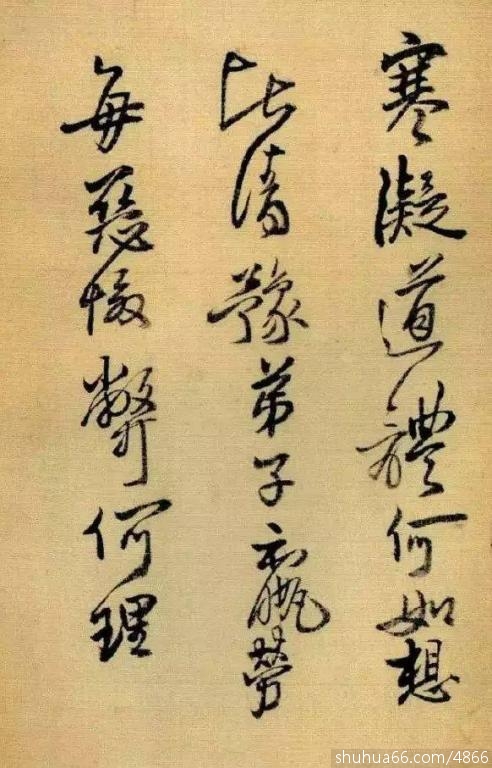 寒凝道體何如想
比清豫弟子羸勞
每惡㥿弊何理
shuhua66.com/4866